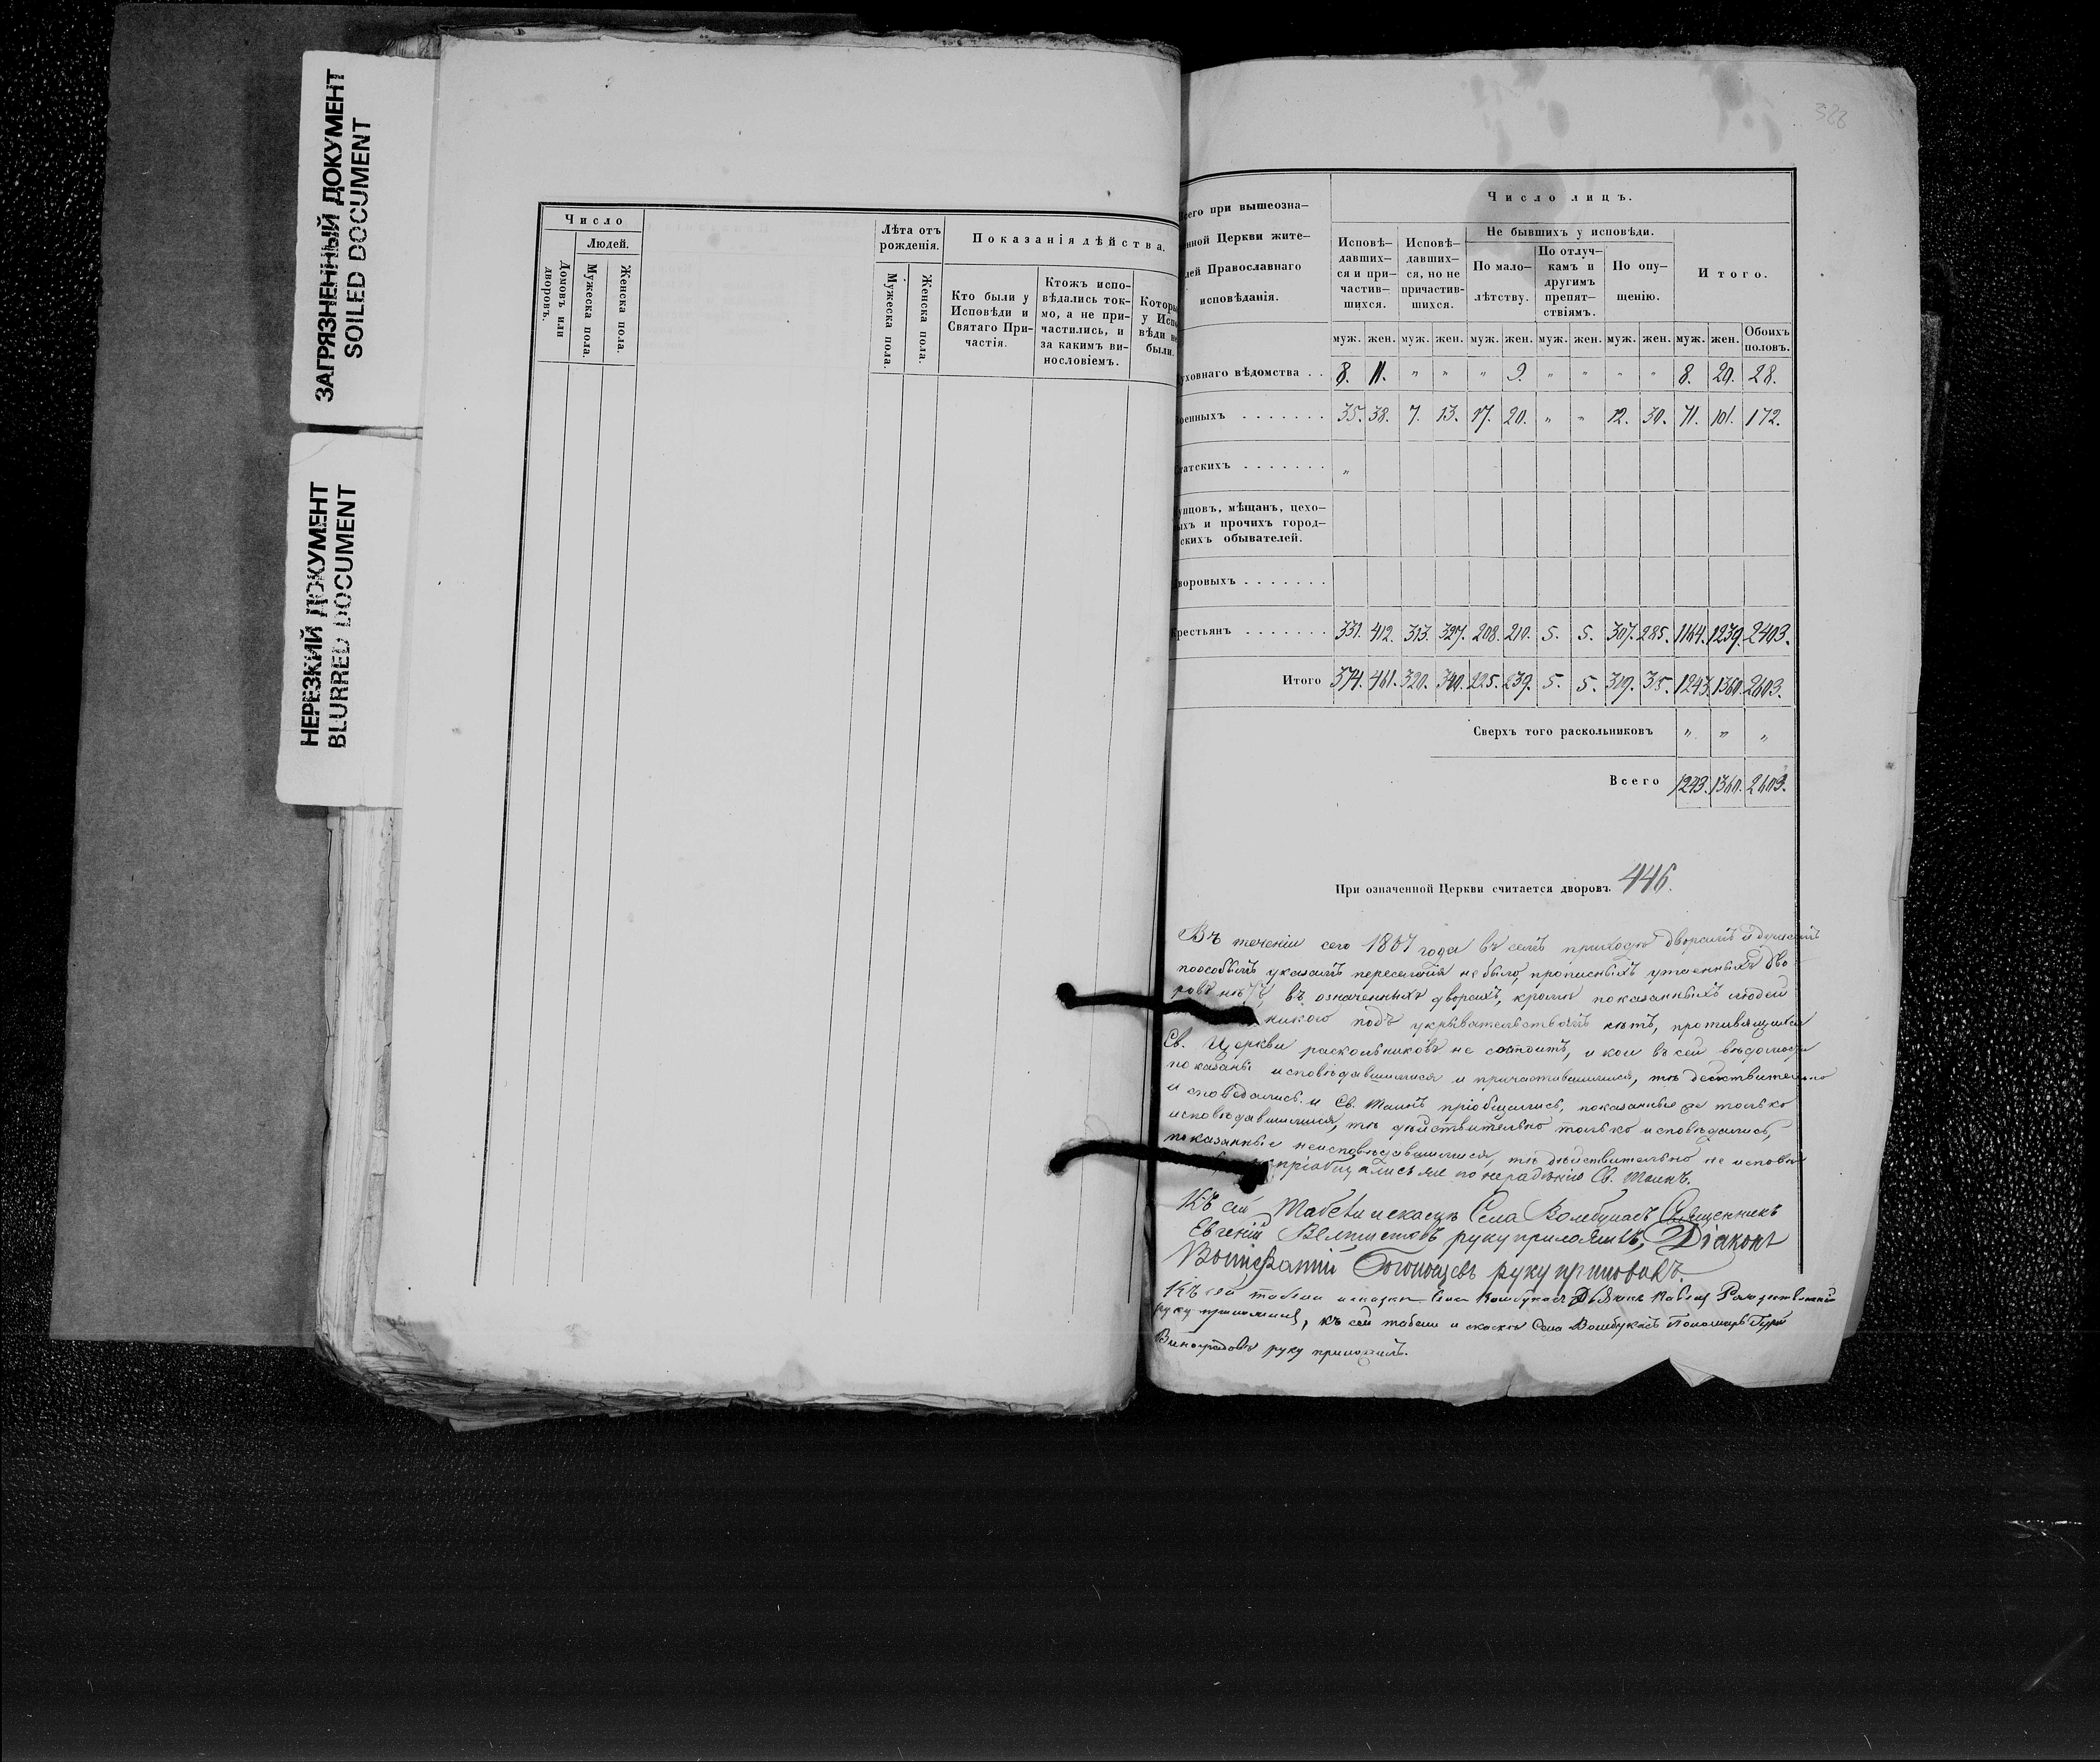 ЗАГРЯЗНЕННЫЙ ДОКУМЕНТ
SOILED DOCUMENT
НЕРЕЗКИЙ ДОКУМЕНТ
BLURRED DOCUMENT
Число
Людей.
Домовъ или дворовъ.
Мужеска пола.
Женска пола.
Лѣта отъ рожденія.
Мужеска пола.
Женска пола.
Показанія дѣйства.
Кто были у Исповѣди и Святаго Причастія.
Ктожъ исповѣдались токмо, а не причастились, и за какимъ винословіемъ.
Которые у Исповѣди не были.
328
Всего при вышеозна-
ченной Церкви жите-
лей Православнаго
исповѣданія.
Число лицъ.
Исповѣ-
давших-
ся и при-
частив-
шихся.
Исповѣ-
давших-
ся, но не
причастив-
шихся.
Не бывшихъ у исповѣди.
По мало-
лѣтству.
По отлуч-
камъ и
другимъ
препят-
ствіямъ.
По опу-
щенію.
Итого.
муж. жен. муж. жен. муж. жен. муж. жен. муж. жен. муж. жен. Обоихъ половъ.
уховнаго вѣдомства . . 8. 11. " " " 9. " " " " 8. 20. 28.
оенныхъ . . . . . . . 35. 38. 7. 13. 17. 20. " " 12. 30. 71. 101. 172.
татскихъ . . . . . . . "
упцовъ, мѣщанъ, цехо-
ыхъ и прочихъ город-
скихъ обывателей.
воровыхъ . . . . . . .
рестьянъ . . . . . . . 331. 412. 313. 327. 208. 210. 5. 5. 307. 285. 1164. 1239. 2403.
Итого 374. 461. 320. 340. 225. 239. 5. 5. 319. 315. 1243. 1360. 2603.
Сверхъ того раскольниковъ " " "
Всего 1243. 1360. 2603.
При означенной Церкви считается дворовъ 446.
Въ теченіи сего 1867 года въ семъ приходѣ дворамъ и душамъ
поособымъ указамъ переселенія не было, прописныхъ утаенныхъ дво-
ровъ нѣтъ, въ означенныхъ дворахъ, кромѣ показанныхъ людей
никого подъ укрывательствомъ нѣтъ, противящихся
Св. Церкви раскольниковъ не состоитъ, и кои въ сей вѣдомости
показаны исповѣдавшимися и причастившимися, тѣ действительно
исповѣдались и Св. Таинъ пріобщались, показанные же только
исповѣдавшимися, тѣ дѣйствительно только исповѣдались,
показанные неисповѣдавшимися, тѣ дѣйствительно не исповѣ
пріобщались же по нерадѣнію Св. Таинъ.
Къ сей табели и сказкѣ Села Священникъ
Евгеній руку приложилъ, Діаконъ
руку приложилъ.
Къ сей табели и сказкѣ Села Дьячокъ Павелъ Рождественскій
руку приложилъ, къ сей табели и сказкѣ Села Пономарь Гурій
Виноградовъ руку приложилъ.